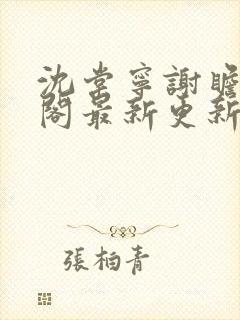 沈棠寧謝瞻
閣最新更新
張柏青